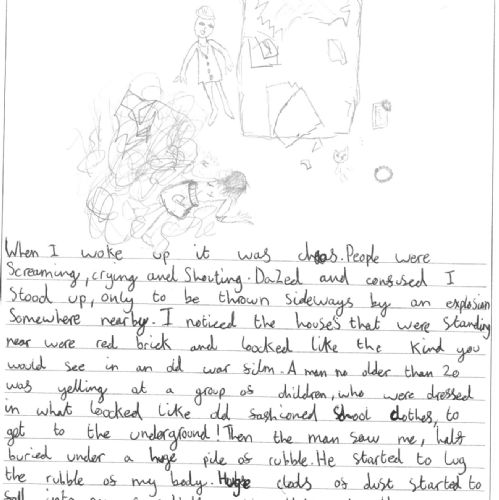 When I woke up it was chaos. People were
Screaming, crying and Shouting. DaZed and confused I
Stood up, only to be thrown sideways by an explosion
Somewhere nearby. I noticed the houses that were standing
near were red brick and looked like the kind you
would see in an old war film. A man no older than 20
was yelling at a group of children, who were dressed
in what loocked like old fashioned School clothes, to
got to the underground! Then the man saw me, half
buried under a huge pile of rubble. He started to lug
the rubble of my body. Huge clods of dust started to